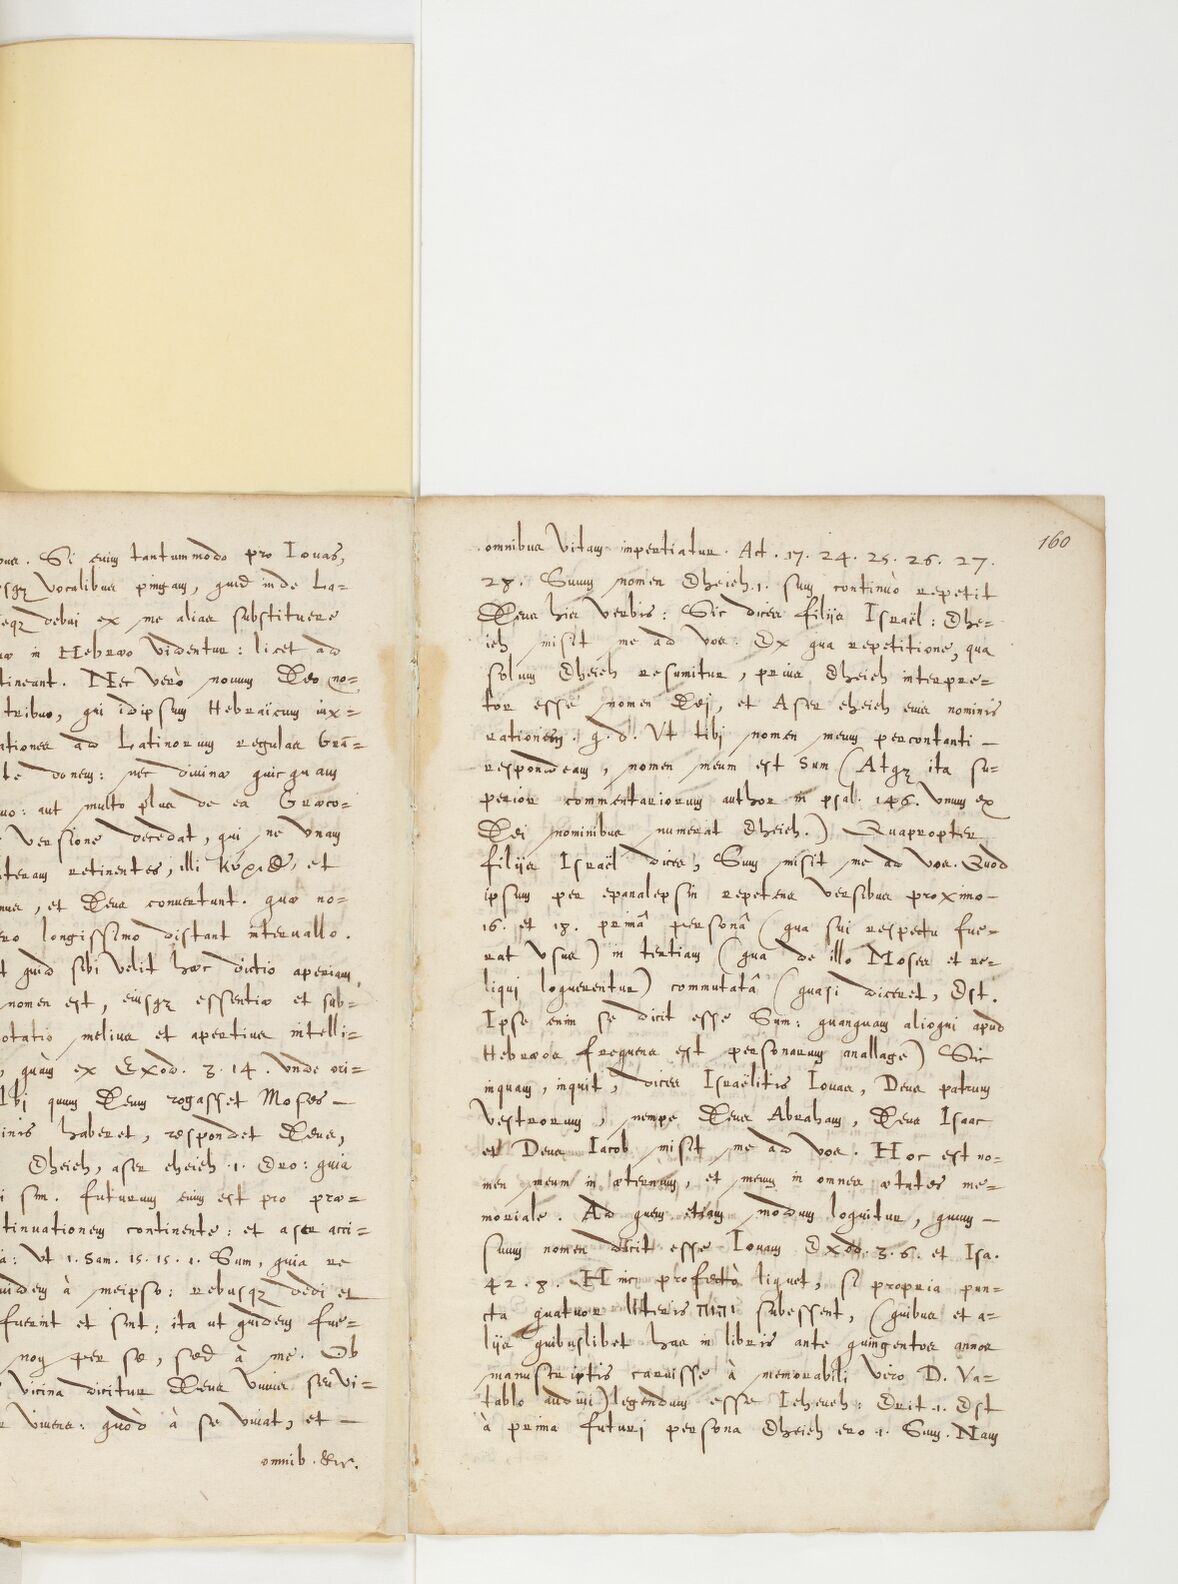 Si enim tantummodo pro Iouas,
vocalibus pingam, quid inde La=
debui ex me alias substituere
in Hebræo videntur: licet ad
tineant. Nec verò nouum Deo no=
tribuo, qui idipsum Hebraïcum iux=
ationes ad Latinorum regulas Grā=
te donem: nec diuinæ quicquam
uo: aut multo plus de ea Græco=
versione decedat, qui ne vnam
teram retinentes, illi κύριος, et
et Deus conuertunt. quæ no=
ero longissimo distant interuallo.
t quid sibi velit hæc dictio aperiam,
nomen est, eiusqꝫ essentiæ et sub=
otatio melius et apertius intelli=
, quàm ex Exod. 3.14. vnde ori=
Ibi quum Deum rogasset Moses
inis haberet, respondet Deus,
Eheieh, aser eheieh .1. Ero: quia
i sim. Futurum enim est pro præ=
tinuationem continente: et aser acci=
a: Vt 1. Sam. 15. 15. 1. Sum, quia re
uidem à meipso: rebusqꝫ dedi et
fuerint et sint: ita ut quidem fue=
non per se, sed à me. Ob
vicina dicitur Deus viuus seu vi=
viuens: quòd à se viuat, et
omnib. &c.
160
omnibus vitam impertiatur. Act. 17. 24. 25. 26. 27.
28. Suum nomen Eheieh .1. sum continuò repetit
Deus his verbis: Sic dices filijs Israël: Ehe=
ieh misit me ad vos. Ex qua repetitione, qua
solum Eheieh resumitur, prius Eheieh interpre=
tor esse nomen Dei, et Aser eheieh eius nominis
rationem. q. d. Vt tibi nomen meum percontanti
respondeam, nomen meum est Sum (Atqꝫ ita su=
perior commentariorum author in psal. 146. vnum ex
Dei nominibus numerat Eheieh.) Quapropter
filijs Israël dices, Sum misit me ad vos. Quod
ipsum per epanalepsin repetens versibus proximo
16. et 18. primâ personâ (qua sui respectu fue=
rat vsus) in tertiam (qua de illo Moses et re=
liqui loquerentur) commutatâ (quasi diceret, Est.
Ipse enim se dicit esse Sum: quanquam alioqui apud
Hebræos frequens est personarum anallage) Sic
inquam, inquit, dices Israëlitis Iouas, Deus patrum
vestrorum, nempe Deus Abraham, Deus Isaac
et Deus Iacob misit me ad vos. Hoc est no=
men meum in æternum, et meum in omnes ætates me=
moriale. Ad quem etiam modum loquitur, quum
suum nomen dicit esse Iouam Exod. 3. 6. et Isa.
42. 8. Hinc profectò liquet, si propria pun=
cta quatuor literis יהוה subessent, (quibus et a=
lijs quibuslibet has in libris ante quingentos annos
manuscriptis caruisse à memorabili viro D. Va=
tablo audiui) legendum esse Ieheueh: Erit .1. Est
à prima futuri persona Eheieh ero .1. Sum. Nam